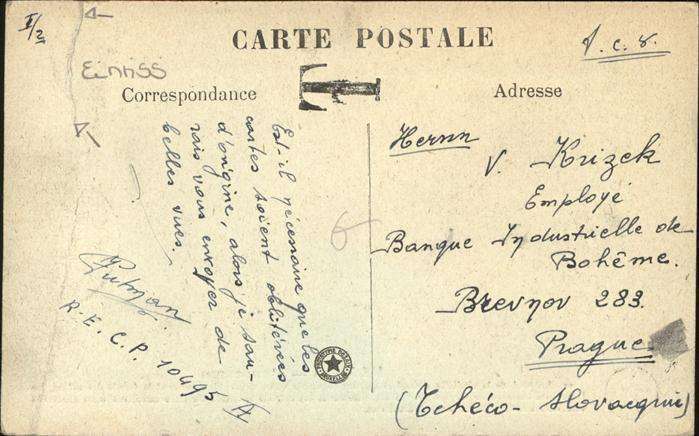 I/2
CARTE POSTALE
J. c. 8.
Einriss
Correspondance
T
Adresse
Est-il nécessaire que les
cartes soient oblitérées
d'origine, alors je sau-
rais vous envoyer de
belles vues.
Putman
R.E.C.P. 10495
Herrn
V. Krizek
Employé
Banque Industrielle de
Bohême.
Brevnov 283.
Prague
(Tchéco-Slovaquie)